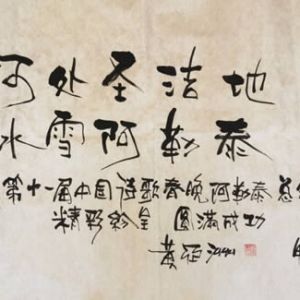 何处圣洁地
冰雪阿勒泰
第十一届中国诗歌春晚阿勒泰总
精彩纷呈 圆满成功
黄亚洲